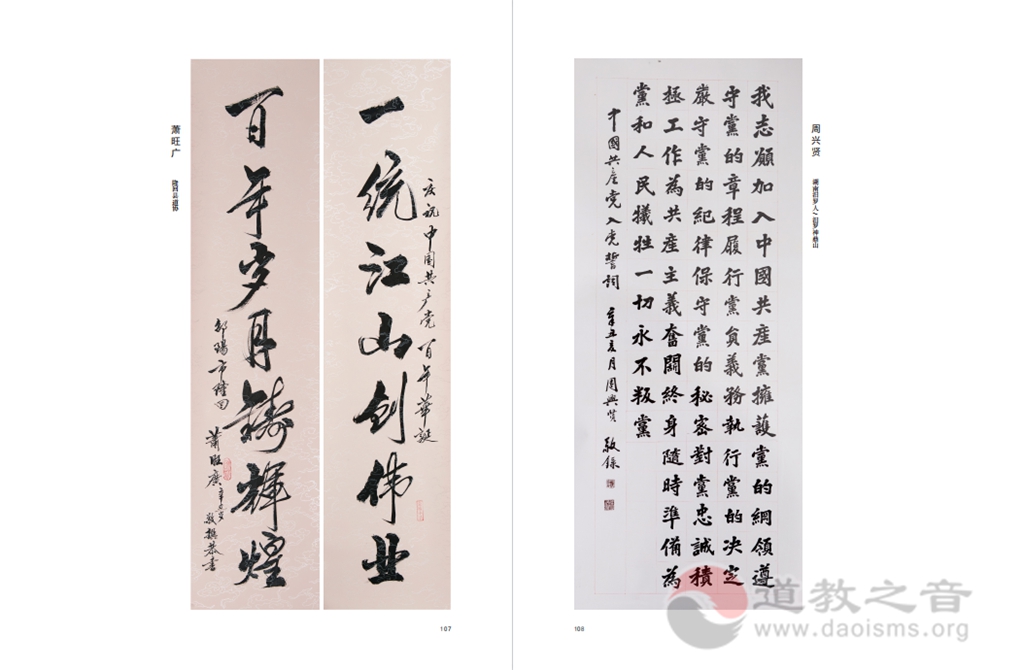 萧旺广
隆回县道协
庆祝中国共产党百年华诞
一统江山创伟业
百年岁月铸辉煌
邵陽市隆回
萧旺廣辛丑岁敬撰恭書
107
周兴贤
湖南汨罗人/汨罗神鼎山
我志願加入中國共産黨擁護黨的綱領遵
守黨的章程履行黨員義務執行黨的决定
嚴守黨的紀律保守黨的秘密對黨忠誠積
極工作為共産主義奮鬪終身隨時準備為
黨和人民犧牲一切永不叛黨
中國共産党入党誓詞 辛丑亥月周興贤敬録
108
道教之音
www.daoisms.org